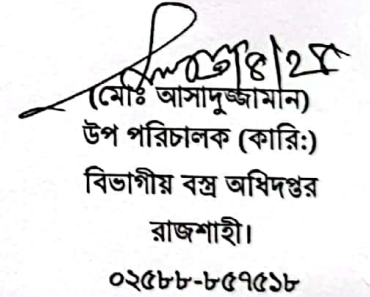 (মোঃ আসাদুজ্জামান)
উপ পরিচালক (কারি:)
বিভাগীয় বস্ত্র অধিদপ্তর
রাজশাহী।
০২৫৮৮-৮৫৭৫১৮